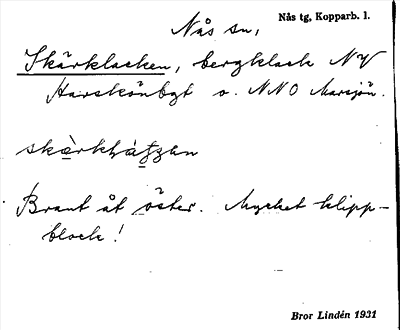 Nås sn, Nås tg, Kopparb. l.
Skärklacken, bergklack NV
Harskönbgt o. NNO Marsjön.
Brant åt öster. Mycket klipp-
block!
Bror Lindén 1931